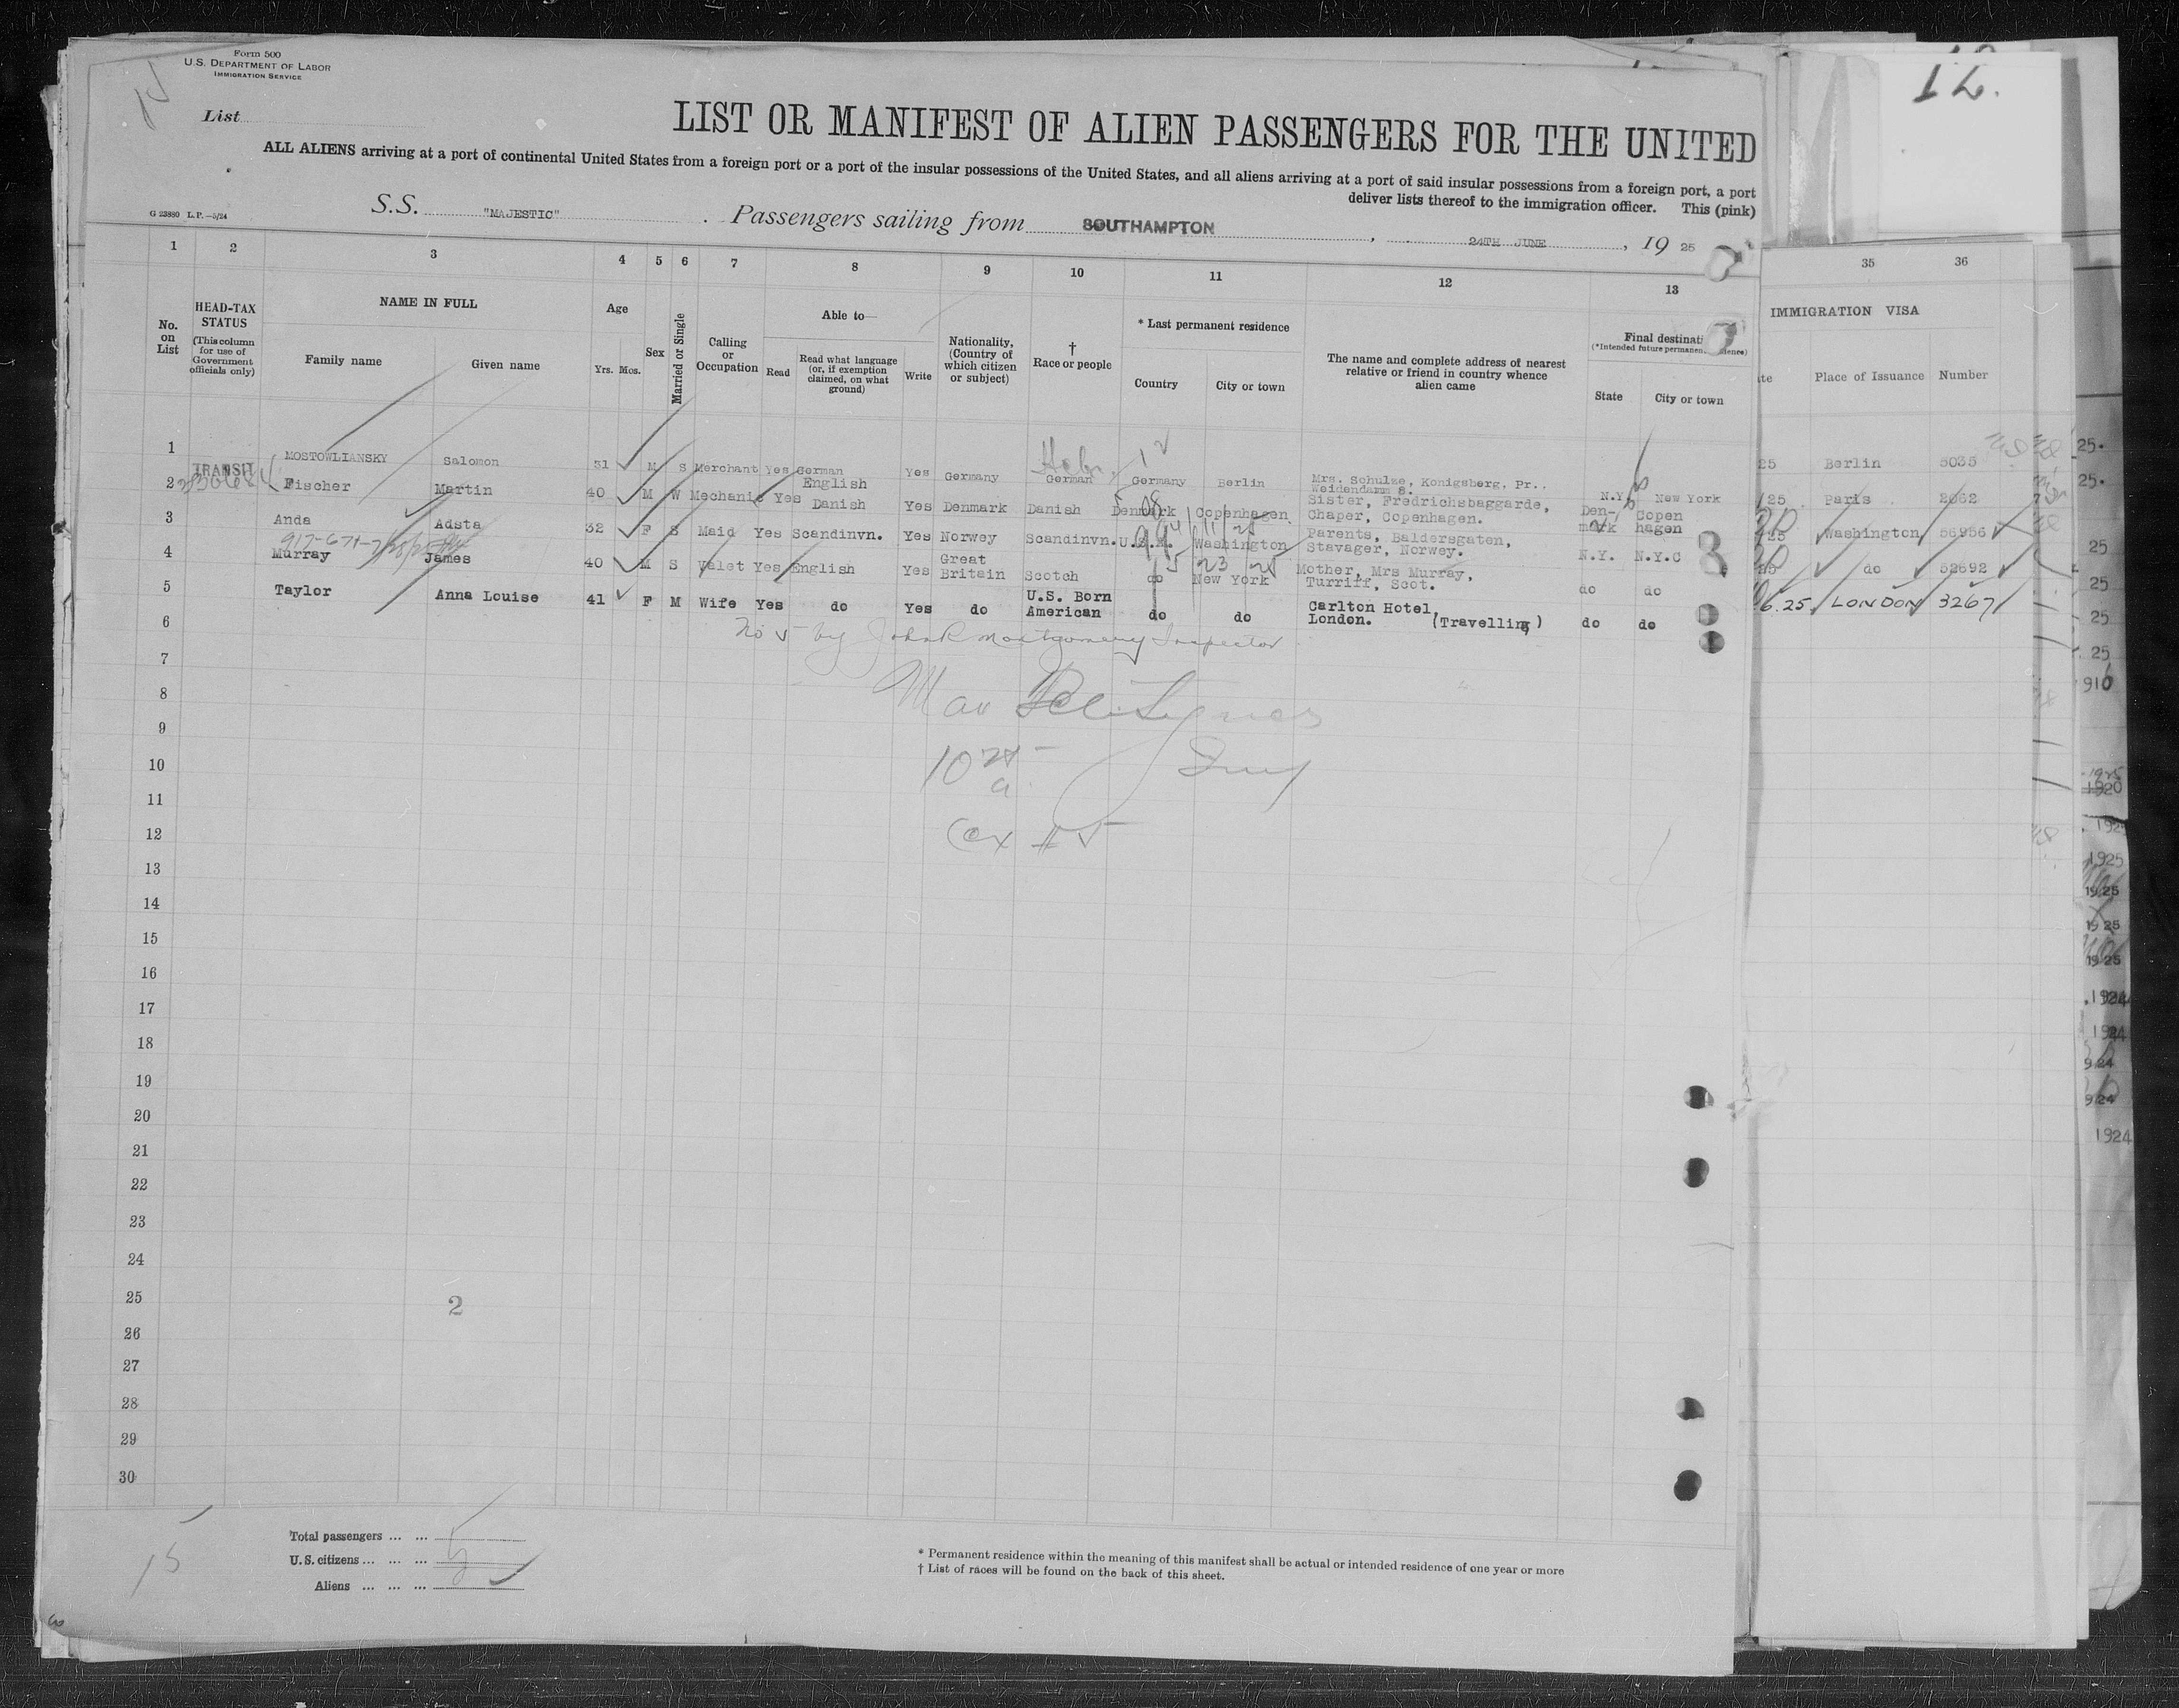 Form 500
U.S. DEPARTMENT OF LABOR
IMMIGRATION SERVICE
12.
List
LIST OR MANIFEST OF ALIEN PASSENGERS FOR THE UNITED
ALL ALIENS arriving at a port of continental United States from a foreign port or a port of the insular possessions of the United States, and all aliens arriving at a port of said insular possessions from a foreign port, a port
deliver lists thereof to the immigration officer. This (pink)
G 23880 L.P.—5/24
S.S. "MAJESTIC" . Passengers sailing from SOUTHAMPTON , 24TH JUNE , 19 25
1 2 3 4 5 6 7 8 9 10 11 12 13 35 36
No. on List
HEAD-TAX STATUS
(This column for use of Government officials only)
NAME IN FULL
Family name Given name
Age
Yrs. Mos.
Sex
Married or Single
Calling or Occupation
Able to—
Read
Read what language (or, if exemption claimed, on what ground)
Write
Nationality, (Country of which citizen or subject)
† Race or people
* Last permanent residence
Country City or town
The name and complete address of nearest relative or friend in country whence alien came
Final destinati
(*Intended future permanen
State City or town
IMMIGRATION VISA
te Place of Issuance Number
1 MOSTOWLIANSKY Salomon 31 M S Merchant Yes German Yes Germany Hebr. German Germany Berlin Mrs. Schulze, Konigsberg, Pr.. Weidendamm 8. N.Y. New York 25 Berlin 5035
2 TRANSIT Fischer Martin 40 M W Mechanic Yes English Danish Yes Denmark Danish Denmark Copenhagen Sister, Fredrichsbaggarde, Chaper, Copenhagen. Den- mark Copen hagen 25 Paris 2062
3 Anda Adsta 32 F S Maid Yes Scandinvn. Yes Norwey Scandinvn. U.S.A. Washington Parents, Baldersgaten, Stavager, Norwey. N.Y. N.Y.C 25 Washington 56956
4 Murray James 40 M S Valet Yes English Yes Great Britain Scotch do New York Mother, Mrs Murray, Turriff, Scot. do do do 52692
5 Taylor Anna Louise 41 F M Wife Yes do Yes do U.S. Born American do do Carlton Hotel, London. (Travelling) do do 6.25 LONDON 3267
6 No 5 by John R Montgomery Inspector
7
8
9
10
11
12
13
14
15
16
17
18
19
20
21
22
23
24
25 2
26
27
28
29
30
15
Total passengers ... ...
U.S. citizens ... ... ...
Aliens ... ... ...
* Permanent residence within the meaning of this manifest shall be actual or intended residence of one year or more
† List of races will be found on the back of this sheet.